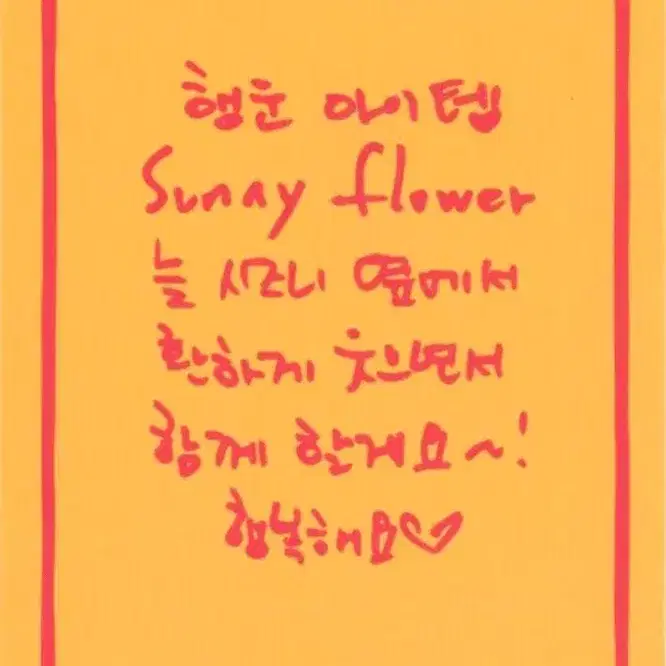 행운 아이템
Sunny flower
늘 시즈니 옆에서
환하게 웃으면서
함께 할게요~!
행복해요♡